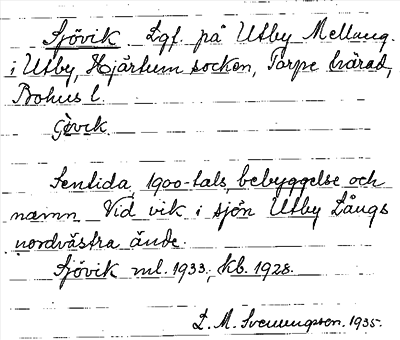 Sjövik Lgf. på Utby Mellang.
i Utby, Hjärtum socken, Torpe härad,
Bohus l.
Sentida, 1900-tals, bebyggelse och
namn. Vid vik i sjön Utby Långs
nordvästra ände.
Sjövik ml. 1933; kb. 1928.
L. M. Svenungsson. 1935.